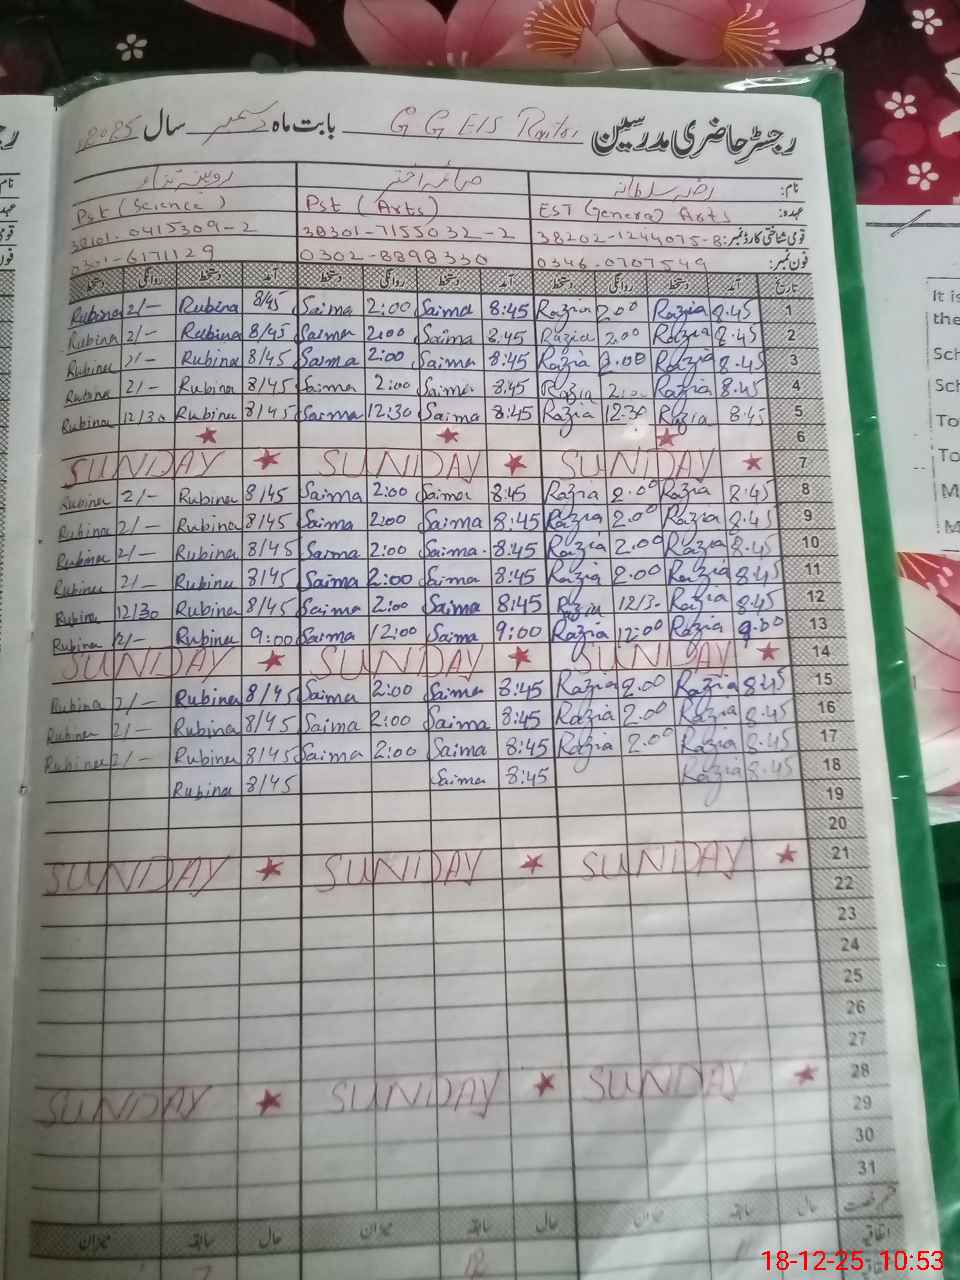 رجسٹر حاضری مدرسین G G E/S بابت ماہ دسمبر سال 2025
نام: رضیہ سلطانہ صائمہ اختر روبینہ
عہدہ: EST (General) Arts Pst (Arts) Pst (Science)
قومی شناختی کارڈ نمبر: 38202-1244075-8 38301-7155032-2 38101-0415309-2
فون نمبر: 0346-0707549 0302-8898330 0301-6171129
تاریخ آمد دستخط روانگی دستخط آمد دستخط روانگی دستخط آمد دستخط روانگی دستخط
1 8.45 Razia 2.00 Razia 8:45 Saima 2:00 Saima 8/45 Rubina 2/- Rubina
2 8.45 Razia 2.00 Razia 8:45 Saima 2:00 Saima 8/45 Rubina 2/- Rubina
3 8.45 Razia 2.00 Razia 8:45 Saima 2:00 Saima 8/45 Rubina 2/- Rubina
4 8.45 Razia 2:00 Razia 8:45 Saima 2:00 Saima 8/45 Rubina 2/- Rubina
5 8:45 Razia 12.30 Razia 8:45 Saima 12:30 Saima 8/45 Rubina 12/30 Rubina
6
7 SUNDAY SUNDAY SUNDAY
8 8:45 Razia 2.00 Razia 8:45 Saima 2:00 Saima 8/45 Rubina 2/- Rubina
9 8.45 Razia 2.00 Razia 8:45 Saima 2:00 Saima 8/45 Rubina 2/- Rubina
10 8.45 Razia 2.00 Razia 8:45 Saima 2:00 Saima 8/45 Rubina 2/- Rubina
11 8.45 Razia 2.00 Razia 8:45 Saima 2:00 Saima 8/45 Rubina 2/- Rubina
12 8.45 Razia 12/3- Razia 8:45 Saima 2:00 Saima 8/45 Rubina 12/30 Rubina
13 9.00 Razia 12:00 Razia 9:00 Saima 12:00 Saima 9:00 Rubina Rubina
14 SUNDAY SUNDAY SUNDAY
15 8:45 Razia 2.00 Razia 8:45 Saima 2:00 Saima 8/45 Rubina 2/- Rubina
16 8.45 Razia 2.00 Razia 8:45 Saima 2:00 Saima 8/45 Rubina 2/- Rubina
17 8.45 Razia 2.00 Razia 8:45 Saima 2:00 Saima 8/45 Rubina 2/- Rubina
18 8.45 Razia 8:45 Saima 8/45 Rubina
19
20
21 SUNDAY SUNDAY SUNDAY
22
23
24
25
26
27
28 SUNDAY SUNDAY SUNDAY
29
30
31
حال سابقہ میزان حال سابقہ میزان حال سابقہ میزان
اتفاقیہ
It is
the
Sch
Sch
To
To
M
M
18-12-25 10:53